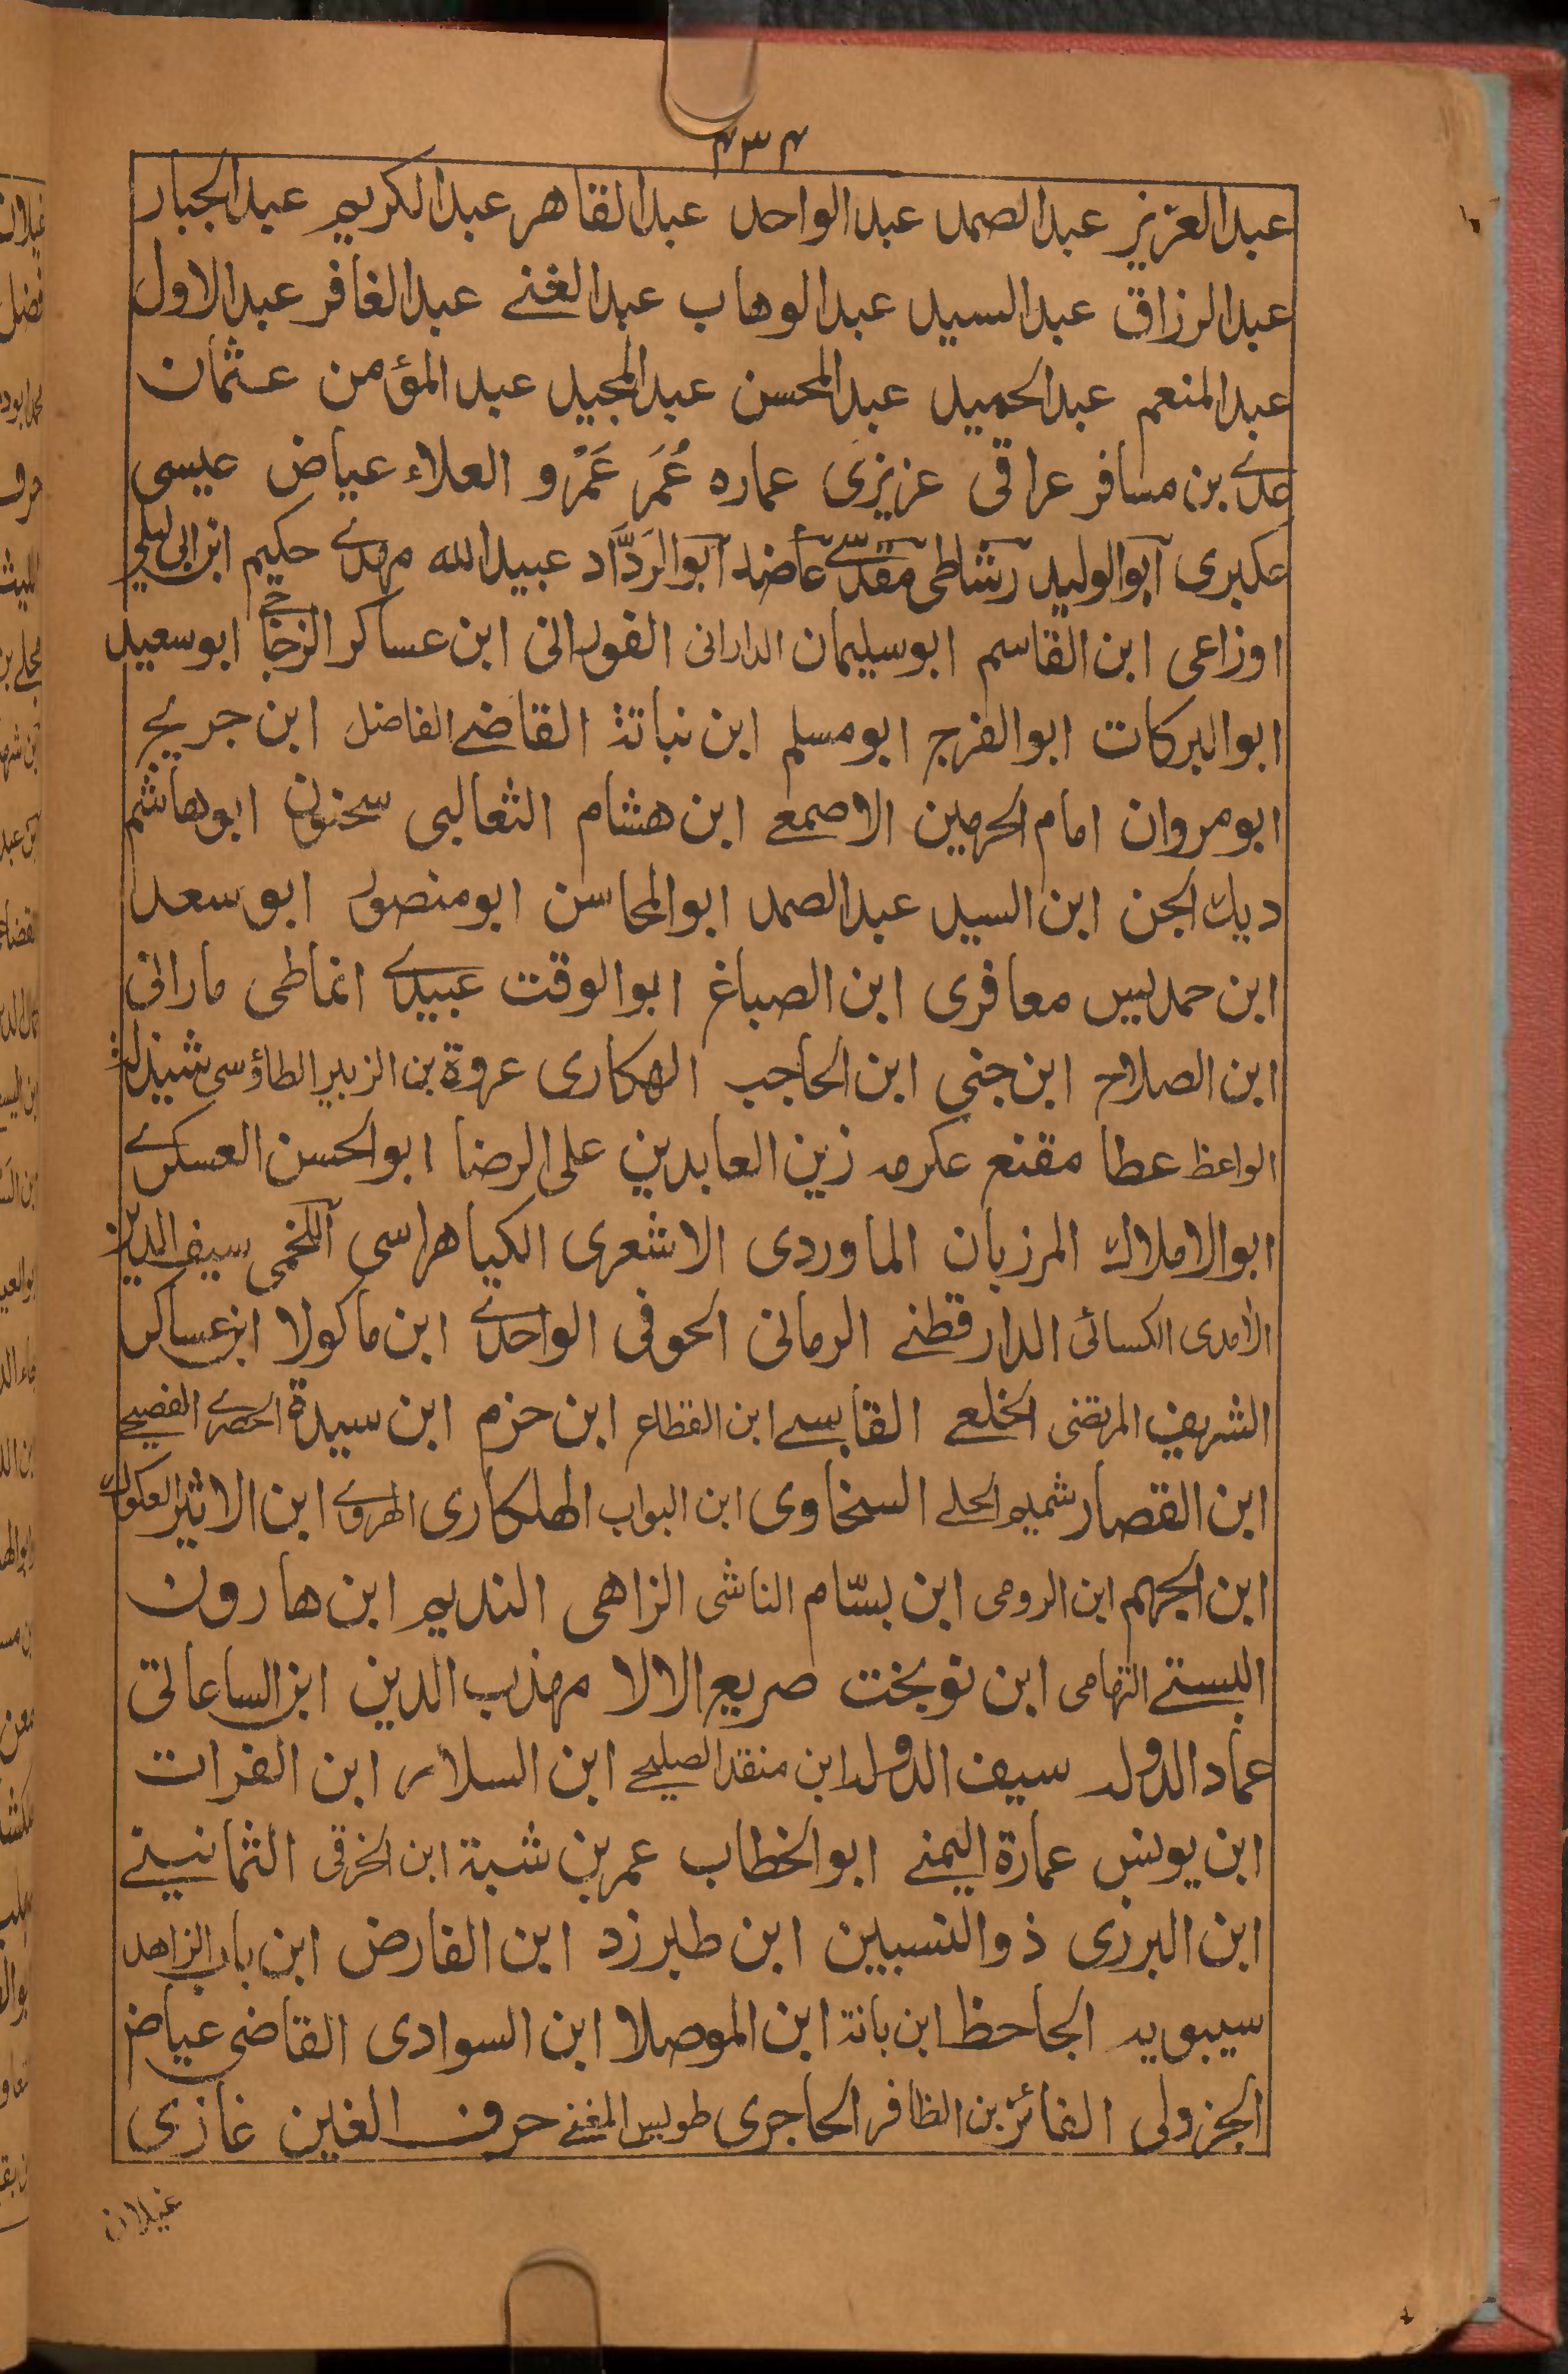 ۴۳۴
عبدالعزیز عبدالصمد عبدالواحد عبدالقاهر عبدالکریم عبدالجبار
عبدالرزاق عبدالسید عبدالوهاب عبدالغنے عبدالغافر عبدالاول
عبدالمنعم عبدالحمید عبدالمحسن عبدالمجید عبدالمؤمن عثمان
عدے بن مسافر عراقی عزیزی عماره عُمَر عَمْرو العلاء عیاض عیسی
عکبری ابوالولید رشاطی مقدسے عاضد ابوالرَدَّاد عبیدالله مهدے حکیم ابن ابی لیلی
اوزاعی ابن القاسم ابوسلیمان الدارانی الفورانی ابن عساکر الزجاجے ابوسعید
ابوالبرکات ابوالفرج ابومسلم ابن نباتة القاضے الفاضل ابن جریج
ابومروان امام الحرمین الاصمعے ابن هشام الثعالبی سحنون ابوهاشم
دیك الجن ابن السید عبدالصمد ابوالمحاسن ابومنصور ابو سعد
ابن حمدیس معافری ابن الصباغ ابوالوقت عبیدے انماطی مارانی
ابن الصلاح ابن جنی ابن الحاجب الهکاری عروة بن الزبیر الطاؤسی شیذله
الواعظ عطا مقنع عکرمه زین العابدین علی الرضا ابوالحسن العسکرے
ابوالاملاك المرزبان الماوردی الاشعری الکیاهراسی اللخمی سیف الدین
الامدی الکسائی الدارقطنے الرمانی الحوفی الواحدے ابن ماکولا ابن عساکر
الشریف المرتضی الخلعے القابسے ابن القطاع ابن حزم ابن سیدة الحصرے الفصیحے
ابن القصار شمیم الحلے السخاوی ابن البواب الهلکاری الهروے ابن الاثیر العکوك
ابن الجهم ابن الرومی ابن بسّام الناشی الزاهی الندیم ابن هارون
البستے التهامی ابن نوبخت صریع الالا مهذب الدین ابن الساعاتی
عماد الدوله سیف الدوله ابن منقذ الصلیحے ابن السلار ابن الفرات
ابن یونس عمارة الیمنے ابوالخطاب عمر بن شبة ابن الخرقی الثمانینے
ابن البرزی ذوالنسبین ابن طبرزد ابن الفارض ابن باب الزاهد
سیبویه الجاحظ ابن بانة ابن الموصلا ابن السوادی القاضی عیاض
الجزولی الفائز بن الظافر الحاجری طویس المغنے حرف الغین غازی
غیلان